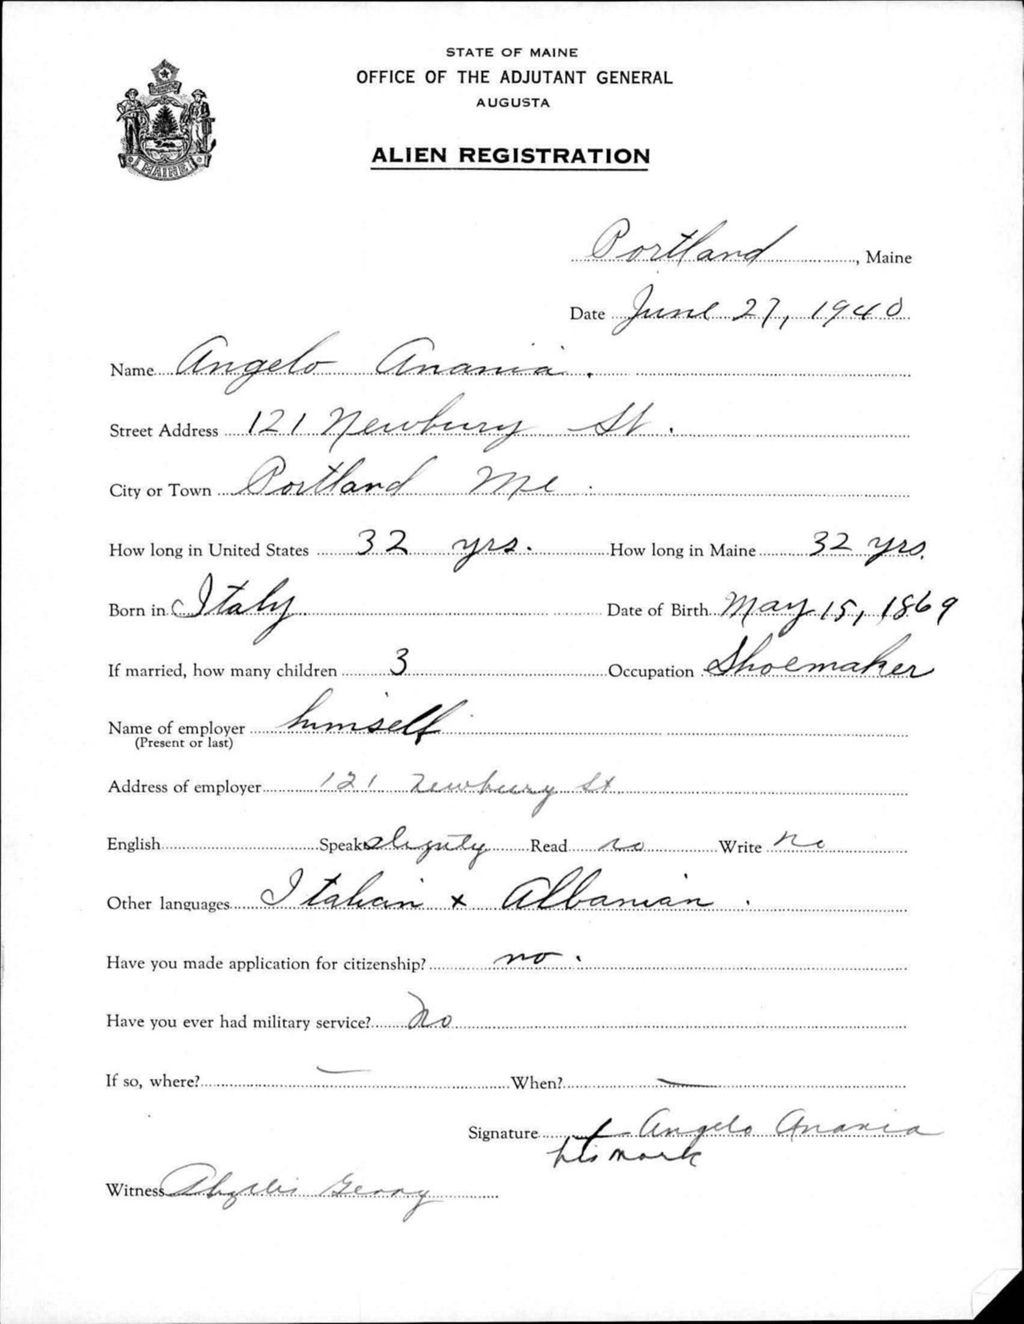 STATE OF MAINE
OFFICE OF THE ADJUTANT GENERAL
AUGUSTA
MAINE
ALIEN REGISTRATION
Portland, Maine
Date June 27, 1940
Name Angelo Anania.
Street Address 121 Newbury St.
City or Town Portland Me.
How long in United States 32 yrs. How long in Maine 32 yrs.
Born in Italy Date of Birth May 15, 1869
If married, how many children 3 Occupation Shoemaker
Name of employer himself
(Present or last)
Address of employer 121 Newbury St.
English Speak Slightly Read no Write No
Other languages Italian & Albanian.
Have you made application for citizenship? no.
Have you ever had military service? No
If so, where? — When? —
Signature Angelo Anania
his mark
Witness Phyllis